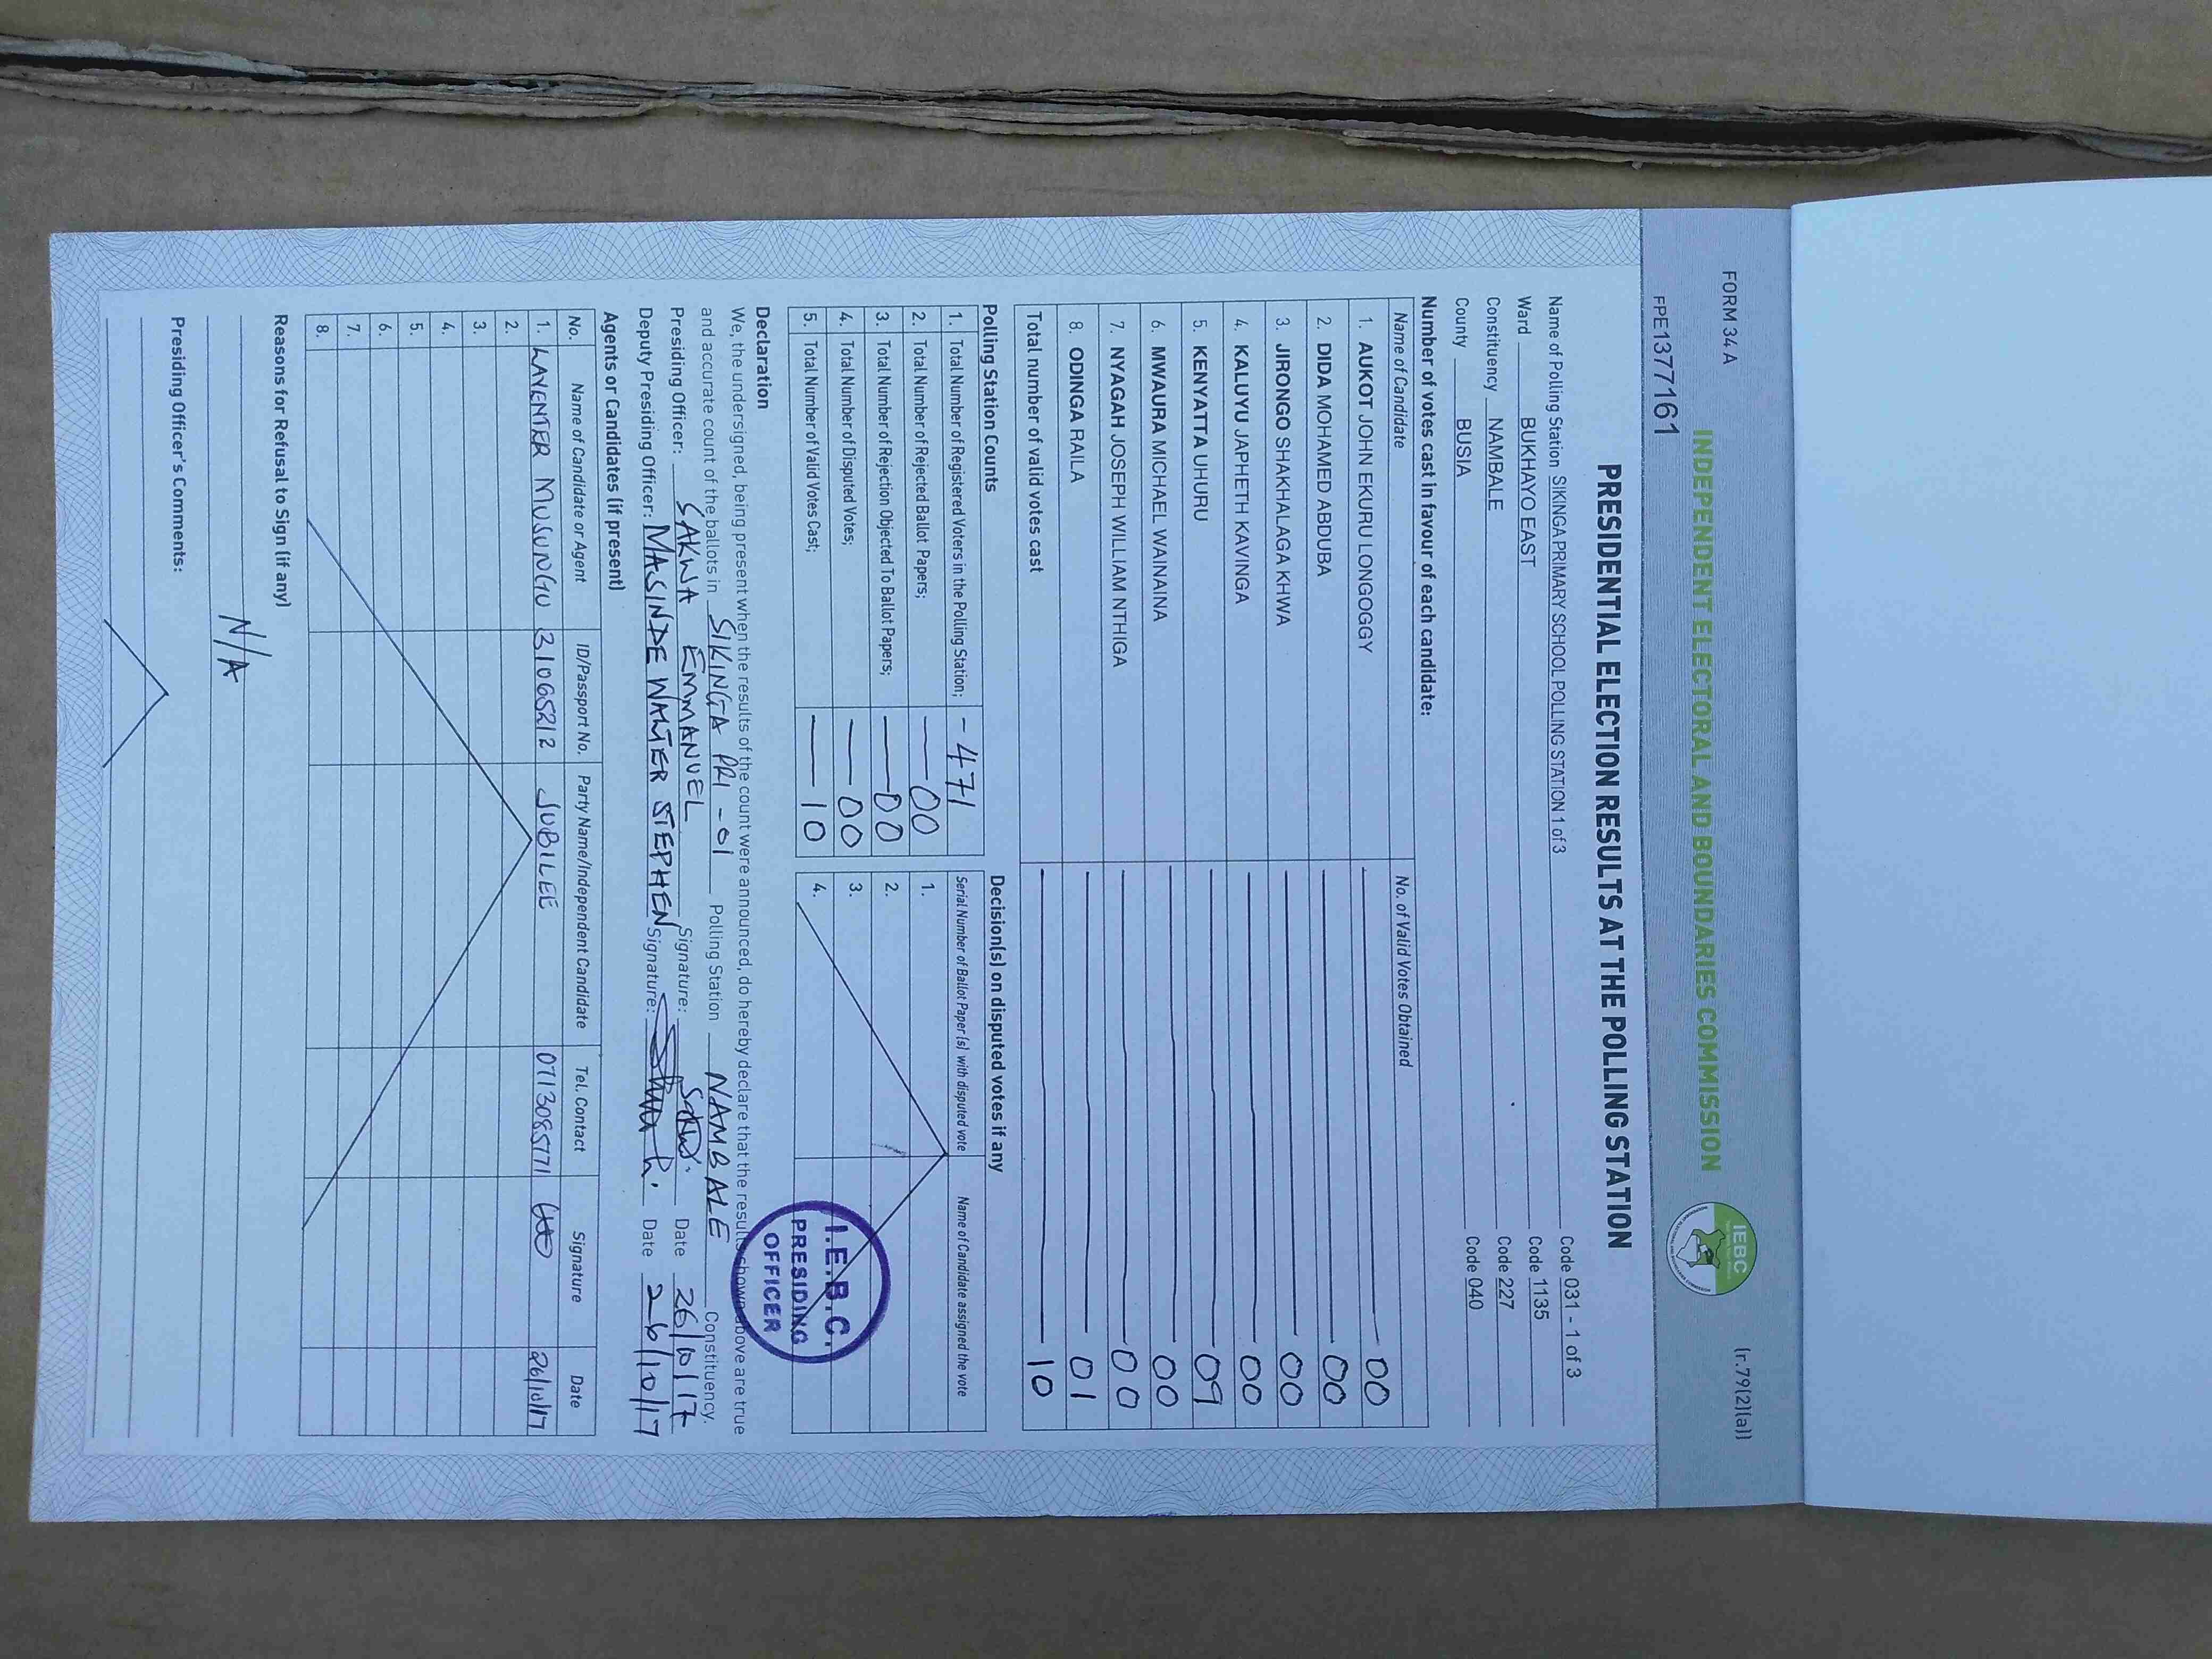 FORM 34 A
(r.79(2)(a))
INDEPENDENT ELECTORAL AND BOUNDARIES COMMISSION
IEBC
FPE1377161
PRESIDENTIAL ELECTION RESULTS AT THE POLLING STATION
Name of Polling Station SIKINGA PRIMARY SCHOOL POLLING STATION 1 of 3 Code 031 - 1 of 3
Ward BUKHAYO EAST Code 1135
Constituency NAMBALE Code 227
County BUSIA Code 040
Number of votes cast in favour of each candidate:
Name of Candidate No. of Valid Votes Obtained
1. AUKOT JOHN EKURU LONGOGGY 00
2. DIDA MOHAMED ABDUBA 00
3. JIRONGO SHAKHALAGA KHWA 00
4. KALUYU JAPHETH KAVINGA 00
5. KENYATTA UHURU 09
6. MWAURA MICHAEL WAINAINA 00
7. NYAGAH JOSEPH WILLIAM NTHIGA 00
8. ODINGA RAILA 01
Total number of valid votes cast 10
Polling Station Counts
1. Total Number of Registered Voters in the Polling Station; - 471
2. Total Number of Rejected Ballot Papers; 00
3. Total Number of Rejection Objected To Ballot Papers; 00
4. Total Number of Disputed Votes; 00
5. Total Number of Valid Votes Cast; 10
Decision(s) on disputed votes if any
Serial Number of Ballot Paper(s) with disputed vote Name of Candidate assigned the vote
1.
2.
3.
4.
I.E.B.C.
PRESIDING
OFFICER
Declaration
We, the undersigned, being present when the results of the count were announced, do hereby declare that the results shown above are true
and accurate count of the ballots in SIKINGA PRI - 01 Polling Station NAMBALE Constituency.
Presiding Officer: SAKWA EMMANUEL Signature: Date 26/10/17
Deputy Presiding Officer: MASINDE WALTER STEPHEN Signature: Date 26/10/17
Agents or Candidates (if present)
No. Name of Candidate or Agent ID/Passport No. Party Name/Independent Candidate Tel. Contact Signature Date
1. LAVENTER MUSUNGU 31065212 JUBILEE 0713085771 26/10/17
2.
3.
4.
5.
6.
7.
8.
Reasons for Refusal to Sign (if any)
N/A
Presiding Officer's Comments: